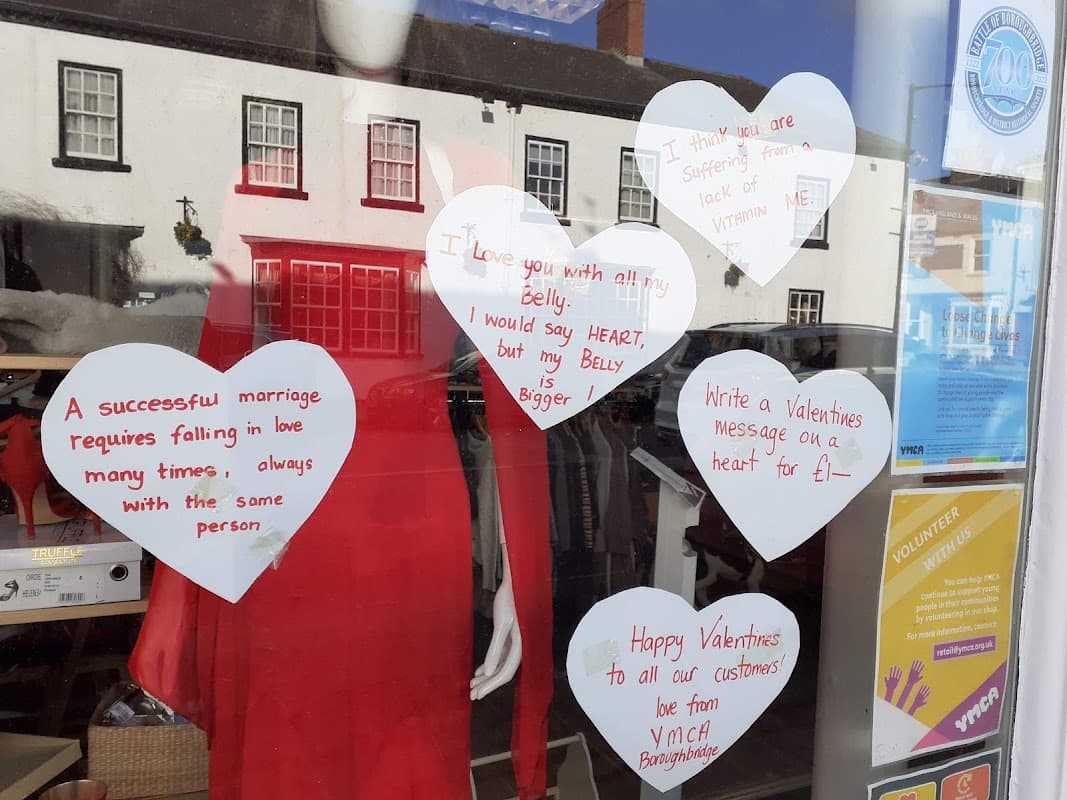 I think you are
Suffering from a
lack of
VITAMIN ME.
I Love you with all my
Belly.
I would say HEART,
but my BELLY
is
Bigger !
A successful marriage
requires falling in love
many times, always
with the same
person
Write a Valentines
message on a
heart for £1—
Happy Valentines
to all our customers!
love from
YMCA
Boroughbridge
TRUFFLE
BATTLE OF BOROUGHBRIDGE
700
YEARS
1322
2022
YMCA ENGLAND & WALES
YMCA
Loose Change
to Change Lives
YMCA
VOLUNTEER
WITH US
You can help YMCA
continue to support young
people in their communities
by volunteering in our shop.
For more information, contact:
retail@ymca.org.uk
YMCA